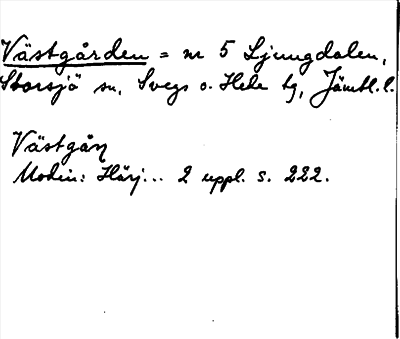 Västgården = nr 5 Ljungdalen,
Storsjö sn, Svegs o. Hede tg, Jämtl. l.
Västgåɳ
Modin: Härj... 2 uppl. s. 222.